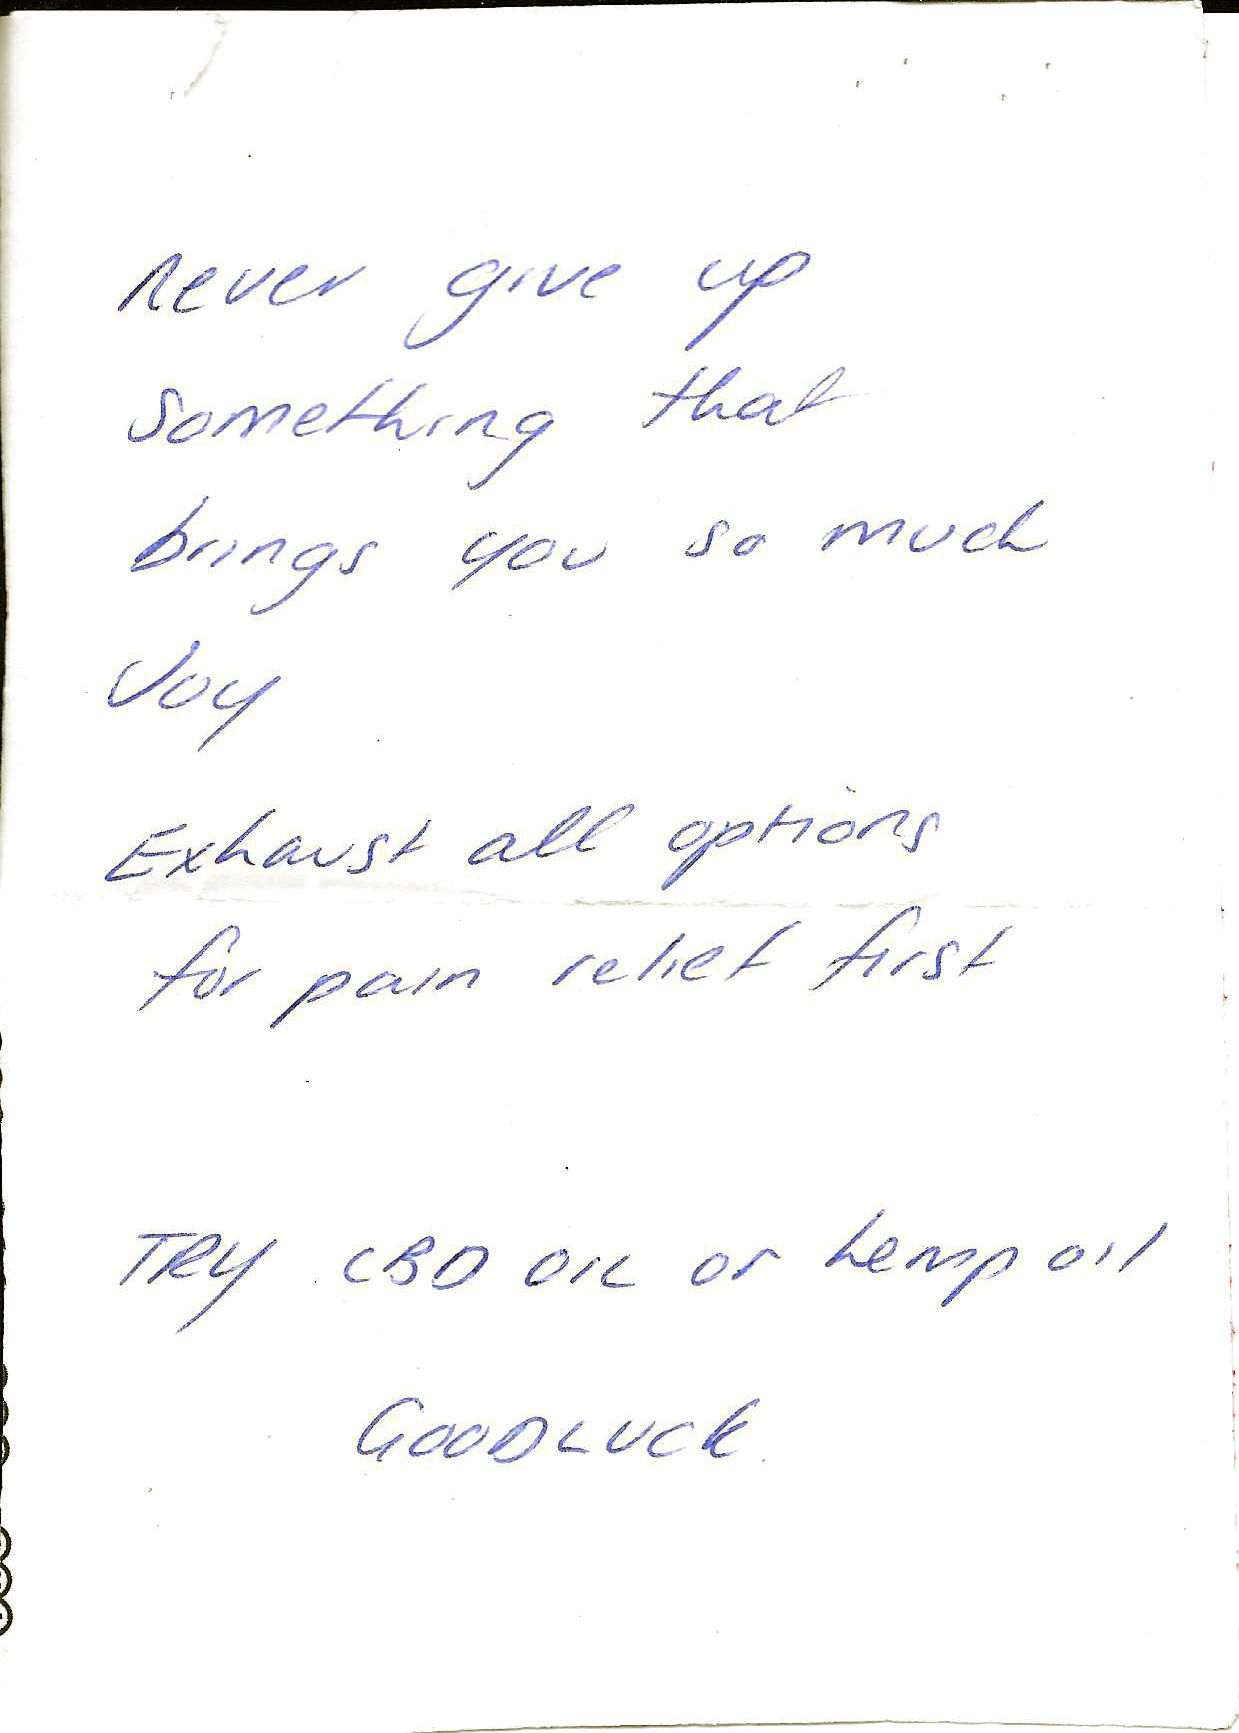 never give up
something that
brings you so much
Joy
Exhaust all options
for pain relief first
TRY CBD OIL or hemp oil
GOODLUCK